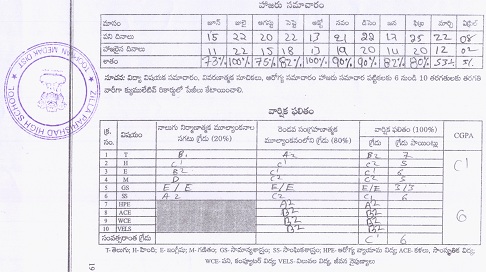 హాజరు సమాచారం
మాసం జూన్ జులై ఆగస్టు సెప్టె అక్టో నవం డిసెం జన ఫిబ్ర మార్చి ఏప్రిల్
పని దినాలు 15 22 20 22 13 21 22 17 25 22 08
హాజరైన దినాలు 11 22 15 18 13 19 20 14 20 12 02
శాతం 73% 100% 75% 82% 100% 90% 90% 82% 80%
సూచన: విద్యా విషయక సమాచారం, వివరణాత్మక సూచికలు, ఆరోగ్య సమాచారం హాజరు సమాచార పట్టికలకు 6 నుండి 10 తరగతులకు తరగతి
వారీగా క్యుములేటివ్ రికార్డులో పేజీలు కేటాయించాలి.
వార్షిక ఫలితం
క్ర. సం. విషయం నాలుగు నిర్మాణాత్మక మూల్యాంకనాల సగటు గ్రేడు (20%) రెండవ సంగ్రహణాత్మక మూల్యాంకనంలోని గ్రేడు (80%) వార్షిక ఫలితం (100%) గ్రేడు గ్రేడు పాయింట్లు CGPA
1 T B1 A2 B2 7
2 H C1 C2 C2 5
3 E B2 C1 C1 6
4 M D C2 C2 5
5 GS E/E E/E E/E 3/3
6 SS A2 C2 C1 6
7 HPE A2 A2
8 ACE B2 B2
9 WCE B2 B2
10 VELS B2 B2
సంవత్సరాంత గ్రేడు C1 6
C1
6
T- తెలుగు; H-హిందీ; E- ఇంగ్లీషు; M-గణితం; GS- సామాన్యశాస్త్రం; SS- సాంఘికశాస్త్రం; HPE- ఆరోగ్య వ్యాయామ విద్య; ACE-కళలు, సాంస్కృతిక విద్య;
WCE- పని, కంప్యూటర్ విద్య; VELS-విలువల విద్య, జీవన నైపుణ్యాలు
ZILLA PARISHAD HIGH SCHOOL
MEDAK DIST